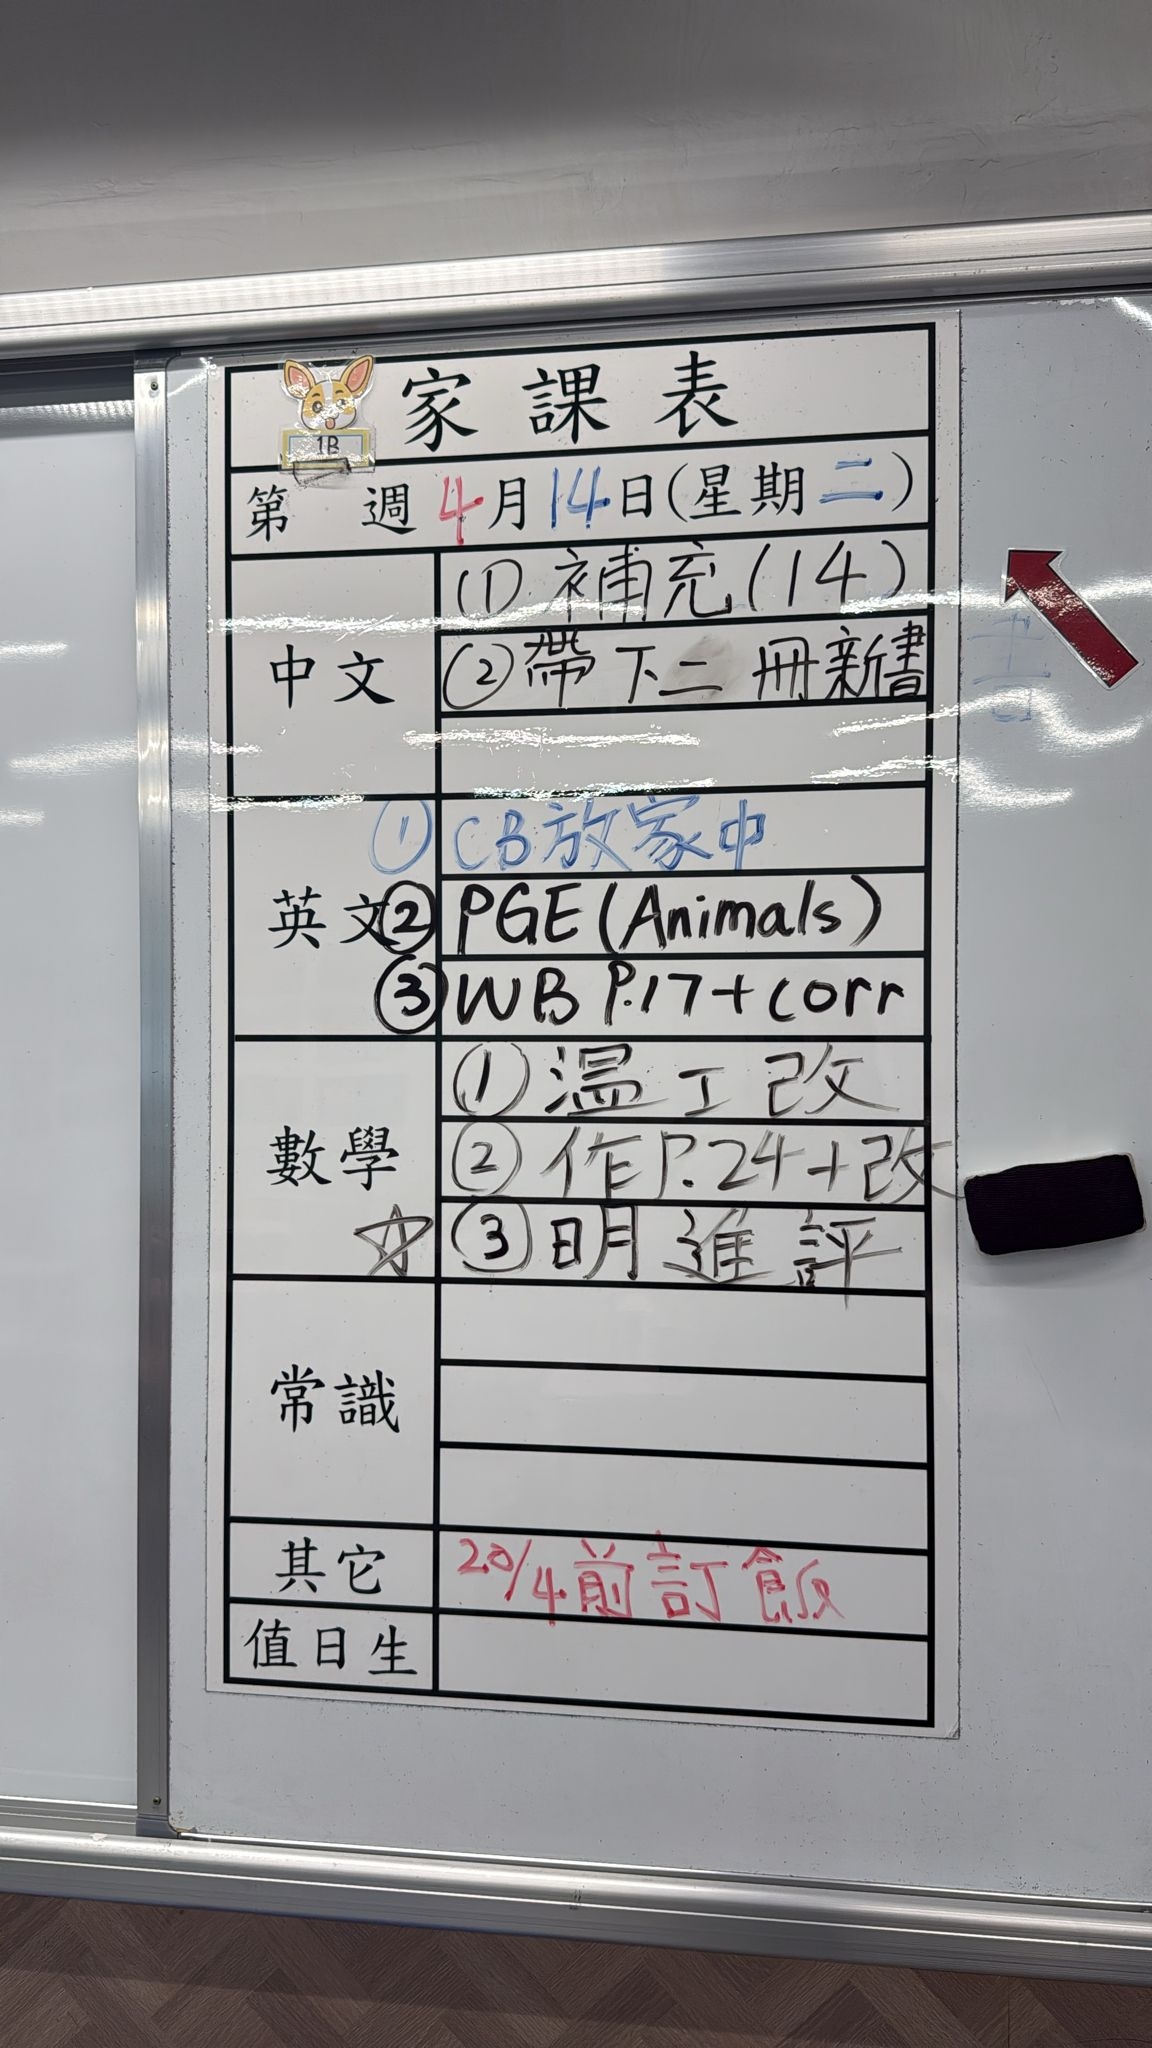 家課表
1B
第 週 4月14日(星期二)
中文
(1) 補充(14)
② 帶下二 冊新書
英文
① CB放家中
② PGE(Animals)
③ WB P.17+corr
數學
① 溫工改
② 作P.24+改
☆ ③ 明進評
常識
其它
20/4前訂飯
值日生